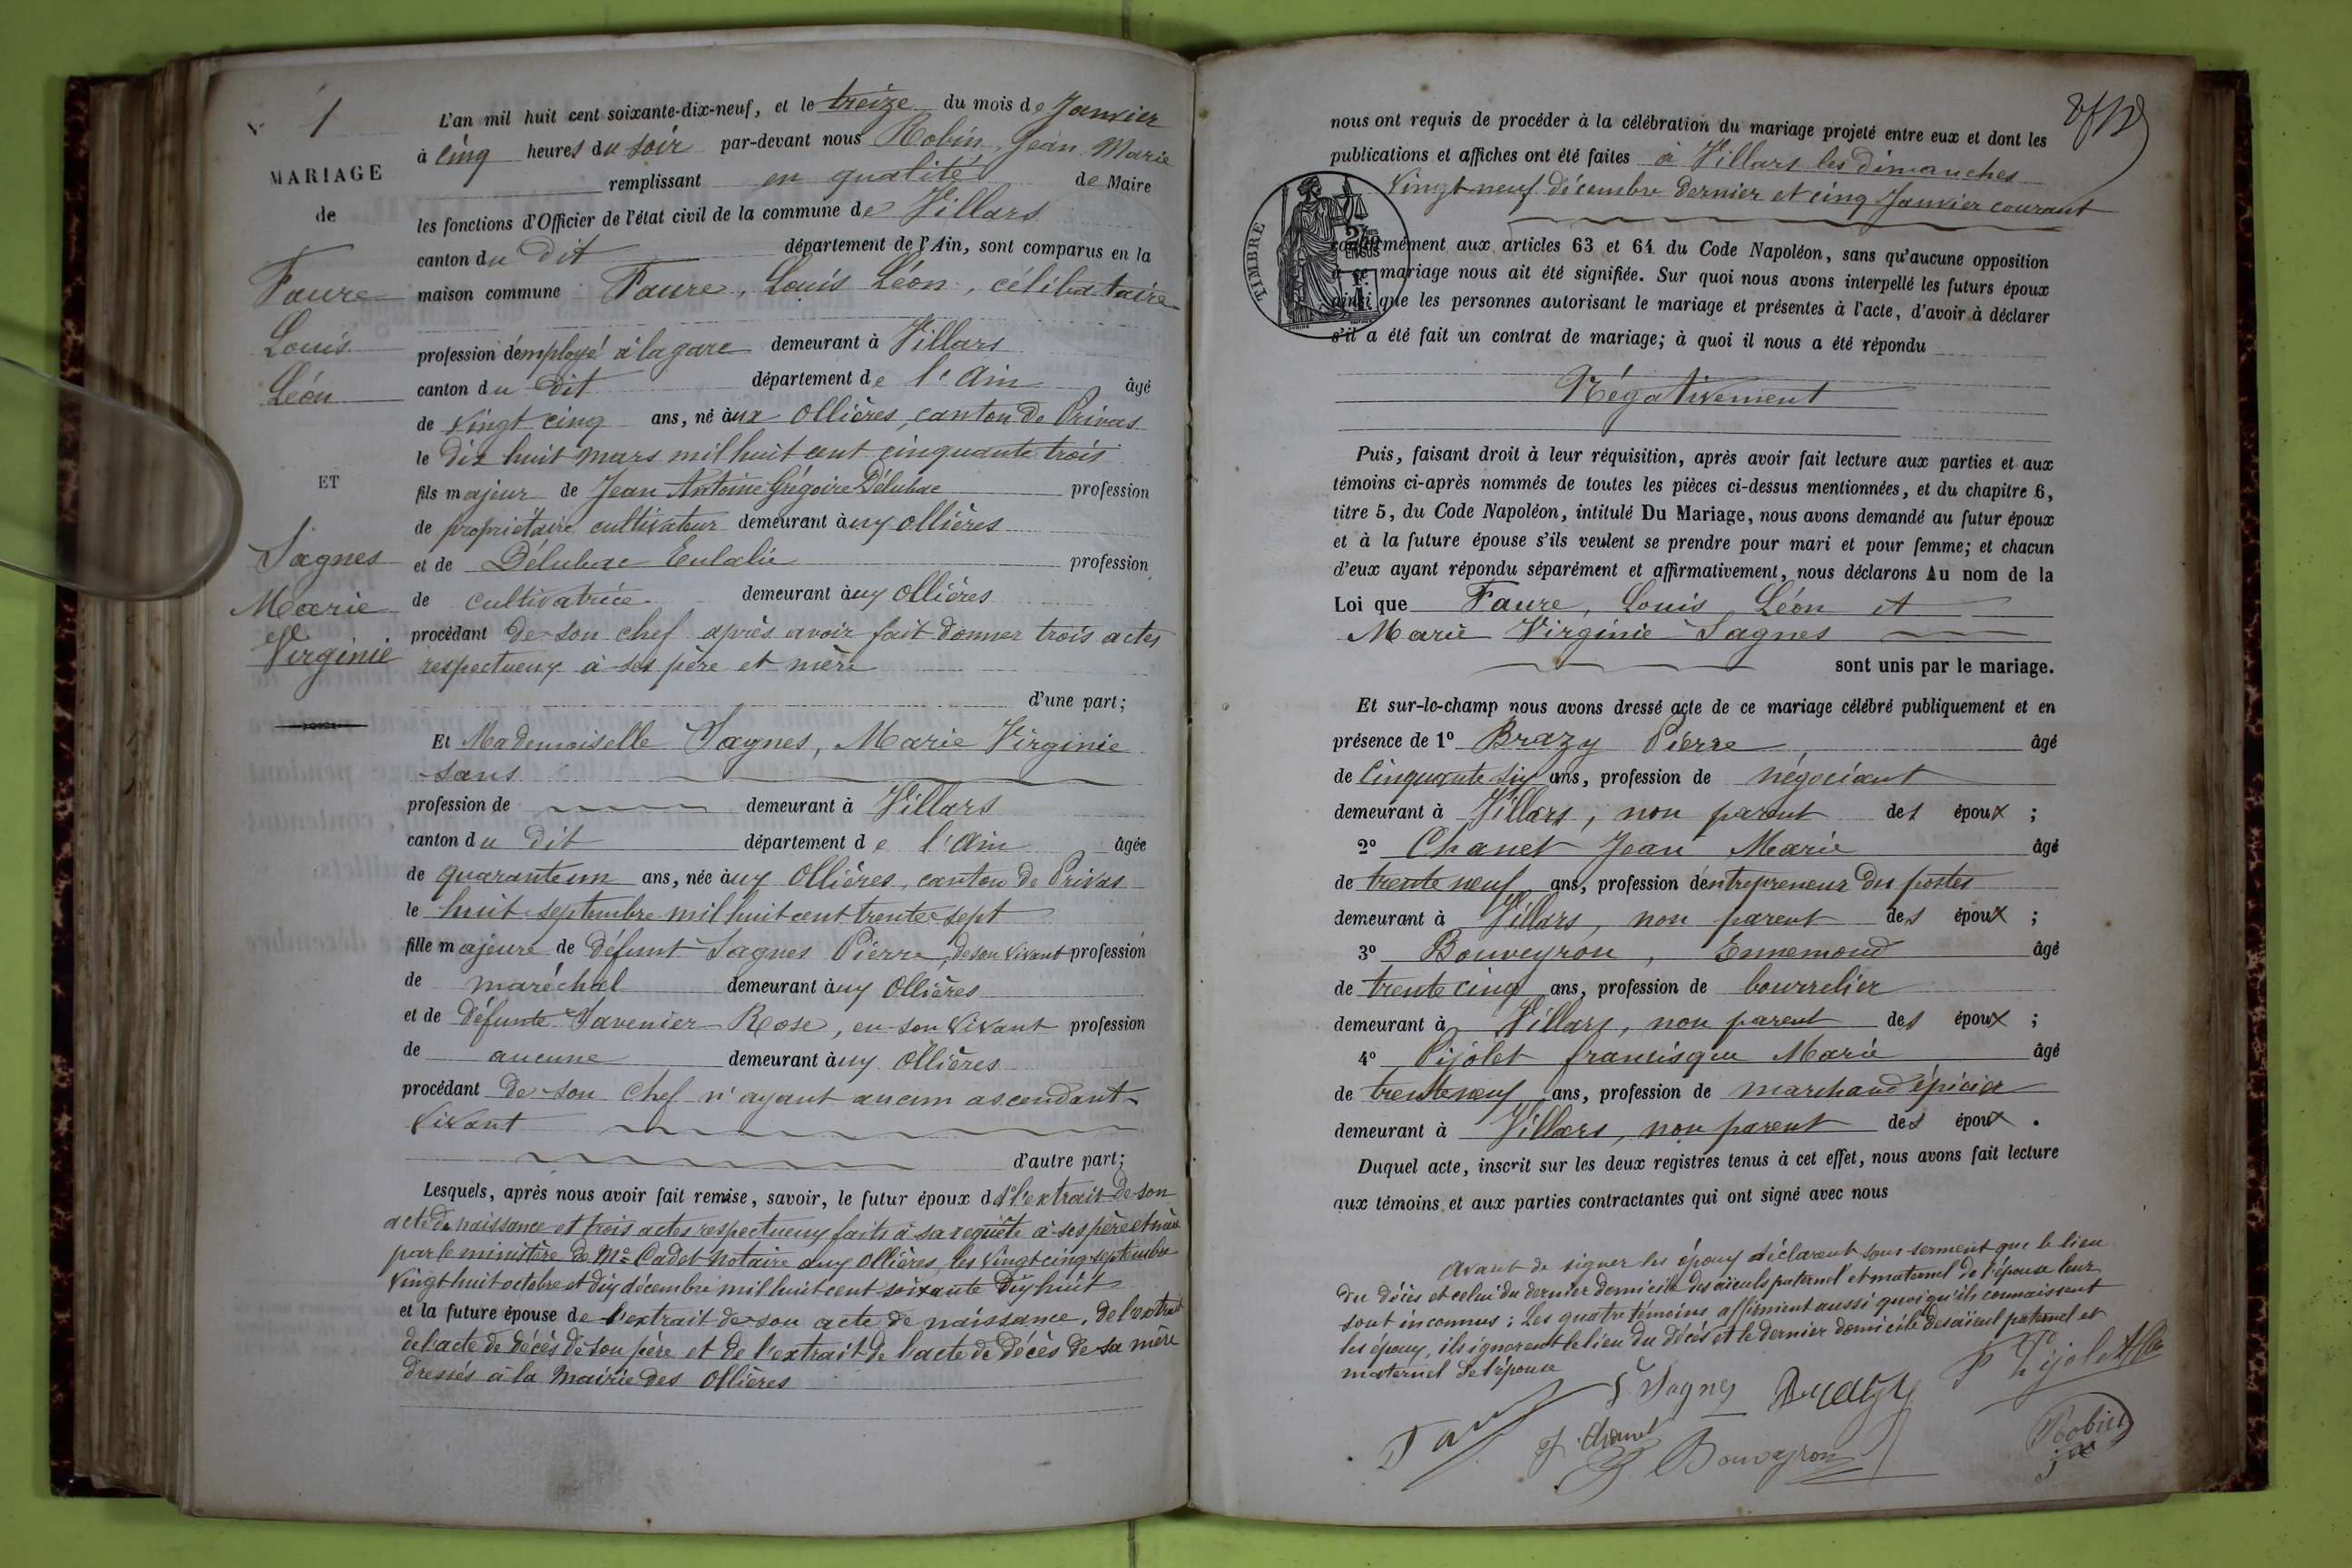 N° 1
MARIAGE
de
Faure
Louis
Léon
ET
Sagnes
Marie
Virginie
L'an mil huit cent soixante-dix-neuf, et le treize du mois de Janvier
à cinq heures du soir par-devant nous Robin, Jean Marie
remplissant en qualité de Maire
les fonctions d'Officier de l'état civil de la commune de Villars
canton du dit département de l'Ain, sont comparus en la
maison commune Faure, Louis Léon, célibataire
profession d'employé à la gare demeurant à Villars
canton du dit département de l'Ain âgé
de vingt cinq ans, né aux Ollières, canton de Privas
le dix huit mars mil huit cent cinquante trois
fils majeur de Jean Antoine Grégoire Délubac profession
de propriétaire cultivateur demeurant aux Ollières
et de Délubac Eulalie profession
de cultivatrice demeurant aux Ollières
procédant de son chef après avoir fait donner trois actes
respectueux à ses père et mère
d'une part;
Et Mademoiselle Sagnes, Marie Virginie
sans
profession de demeurant à Villars
canton du dit département de l'Ain âgée
de quarante un ans, née aux Ollières, canton de Privas
le huit septembre mil huit cent trente sept
fille majeure de défunt Sagnes Pierre, de son vivant profession
de maréchal demeurant aux Ollières
et de défunte Savenier Rose, en son vivant profession
de aucune demeurant aux Ollières
procédant de son chef n'ayant aucun ascendant
vivant
d'autre part;
Lesquels, après nous avoir fait remise, savoir, le futur époux d 1° l'extrait de son
acte de naissance et trois actes respectueux faits à sa requête à ses père et mère
par le ministère de Me Cadet notaire aux Ollières, les vingt cinq septembre
vingt huit octobre et dix décembre mil huit cent soixante dix huit
et la future épouse de l'extrait de son acte de naissance, de l'extrait
de l'acte de décès de son père et de l'extrait de l'acte de décès de sa mère
dressés à la Mairie des Ollières
nous ont requis de procéder à la célébration du mariage projeté entre eux et dont les
publications et affiches ont été faites à Villars les dimanches
vingt neuf décembre dernier et cinq Janvier courant
TIMBRE
conformément aux articles 63 et 64 du Code Napoléon, sans qu'aucune opposition
à ce mariage nous ait été signifiée. Sur quoi nous avons interpellé les futurs époux
ainsi que les personnes autorisant le mariage et présentes à l'acte, d'avoir à déclarer
s'il a été fait un contrat de mariage; à quoi il nous a été répondu
Négativement
Puis, faisant droit à leur réquisition, après avoir fait lecture aux parties et aux
témoins ci-après nommés de toutes les pièces ci-dessus mentionnées, et du chapitre 6,
titre 5, du Code Napoléon, intitulé Du Mariage, nous avons demandé au futur époux
et à la future épouse s'ils veulent se prendre pour mari et pour femme; et chacun
d'eux ayant répondu séparément et affirmativement, nous déclarons Au nom de la
Loi que Faure, Louis Léon et
Marie Virginie Sagnes
sont unis par le mariage.
Et sur-le-champ nous avons dressé acte de ce mariage célébré publiquement et en
présence de 1° Brazy Pierre, âgé
de cinquante six ans, profession de négociant
demeurant à Villars, non parent des époux ;
2° Chanet Jean Marie âgé
de trente neuf ans, profession d'entrepreneur des postes
demeurant à Villars, non parent des époux ;
3° Bouveyron, Ennemond âgé
de trente cinq ans, profession de bourrelier
demeurant à Villars, non parent des époux ;
4° Pijolet francisque Marie âgé
de trente neuf ans, profession de marchand épicier
demeurant à Villars, non parent des époux .
Duquel acte, inscrit sur les deux registres tenus à cet effet, nous avons fait lecture
aux témoins et aux parties contractantes qui ont signé avec nous
avant de signer les époux déclarent sous serment que le lieu
du décès et celui du dernier domicile des aïeuls paternel et maternel de l'épouse leur
sont inconnus : Les quatre témoins affirment aussi quoiqu'ils connaissent
les époux, ils ignorent le lieu du décès et le dernier domicile des aïeul paternel et
maternel de l'épouse
Sagnes Brazy P Pijolet
J. Chanet
Bouveyron Robin